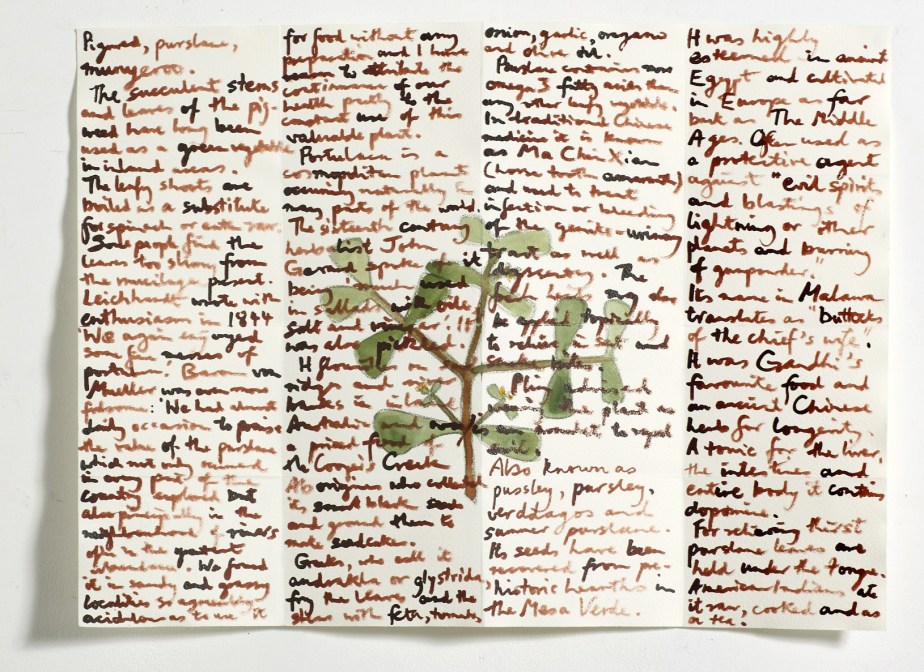 Pigweed, purslane,
munyeroo.
The succulent stems
and leaves of the pig-
weed have long been
used as a green vegetable
in inland areas.
The leafy shoots are
boiled as a substitute
for spinach or eaten raw.
Some people find the
leaves too slimy from
the mucilage present.
Leichhardt wrote with
enthusiasm in 1844
'We again enjoyed
some fine messes of
portulac.' Baron von
Mueller was even more
fulsome: 'We had almost
daily occasion to praise
the value of the purslane
which not only occurred
in every part of the
country explored but
also principally in the
neighbourhood of rivers
often in the greatest
abundance. We found
it in sandy and grassy
localities so agreeably
acidulous as to use it
for food without any
preparation and I have
reason to attribute the
continuance of our
health partly to the
constant use of this
valuable plant.
Portulaca is a
cosmopolitan plant
occurring naturally in
many parts of the world.
The sixteenth century
herbalist John
Gerard spoke of it
being used
in sallads with oile
salt and vinegar. It
was also pickled.
It flowers on
and
in inland
Australia and
a prized food
the Cooper's Creek
Aborigines who collected
its small black seeds
and ground them to
make seedcakes.
Greeks, who call it
andrakla or glystrida,
fry the leaves and the
stems with feta, tomato,
onion, garlic, oregano
and olive oil.
Purslane contains more
omega 3 fatty acids than
any other leafy vegetable.
In traditional Chinese
medicine it is known
as Ma Chin Xian
(horse tooth amaranth)
and used to treat
infection or bleeding
of the genito-urinary
tract as well as
dysentery. The
fresh herb may also
be applied topically
to relieve
and
Pliny
the plant as
an amulet to repel
evil.
Also known as
pussley, pursley,
verdolagos and
summer purslane.
Its seeds have been
recovered from pre-
historic hearths in
the Mesa Verde.
It was highly
esteemed in ancient
Egypt and cultivated
in Europe as far
back as The Middle
Ages. Often used as
a protective agent
against "evil spirits
and blastings of
lightning or other
planets and burning
of gunpowder."
Its name in Malawi
translates as "buttocks
of the chief's wife".
It was Gandhi's
favourite food and
an ancient Chinese
herb for longevity.
A tonic for the liver,
the intestines and
entire body it contains
dopamine.
For relieving thirst
purslane leaves are
held under the tongue.
American Indians ate
it raw, cooked and as
a tea.